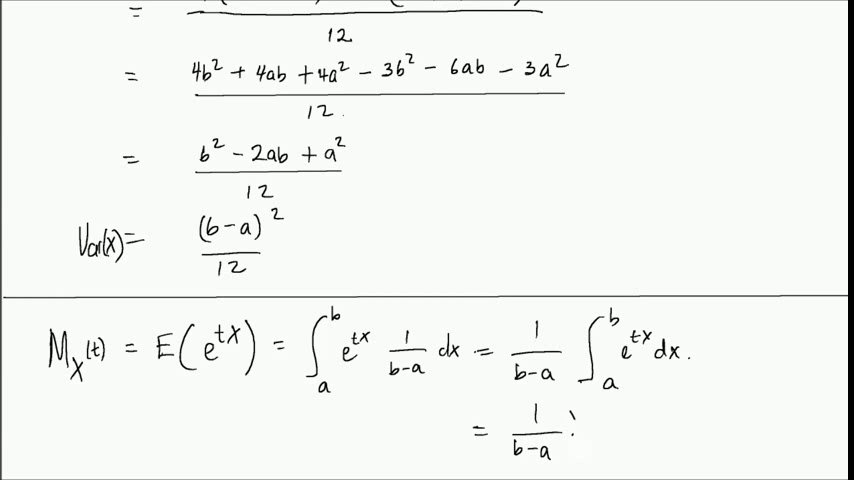 =
12
= 4b² + 4ab + 4a² - 3b² - 6ab - 3a²
12
= b² - 2ab + a²
12
Var(x) = (b-a)²
12
M_X(t) = E(e^{tX}) = ∫_a^b e^{tx} 1/(b-a) dx = 1/(b-a) ∫_a^b e^{tx} dx.
= 1/(b-a)